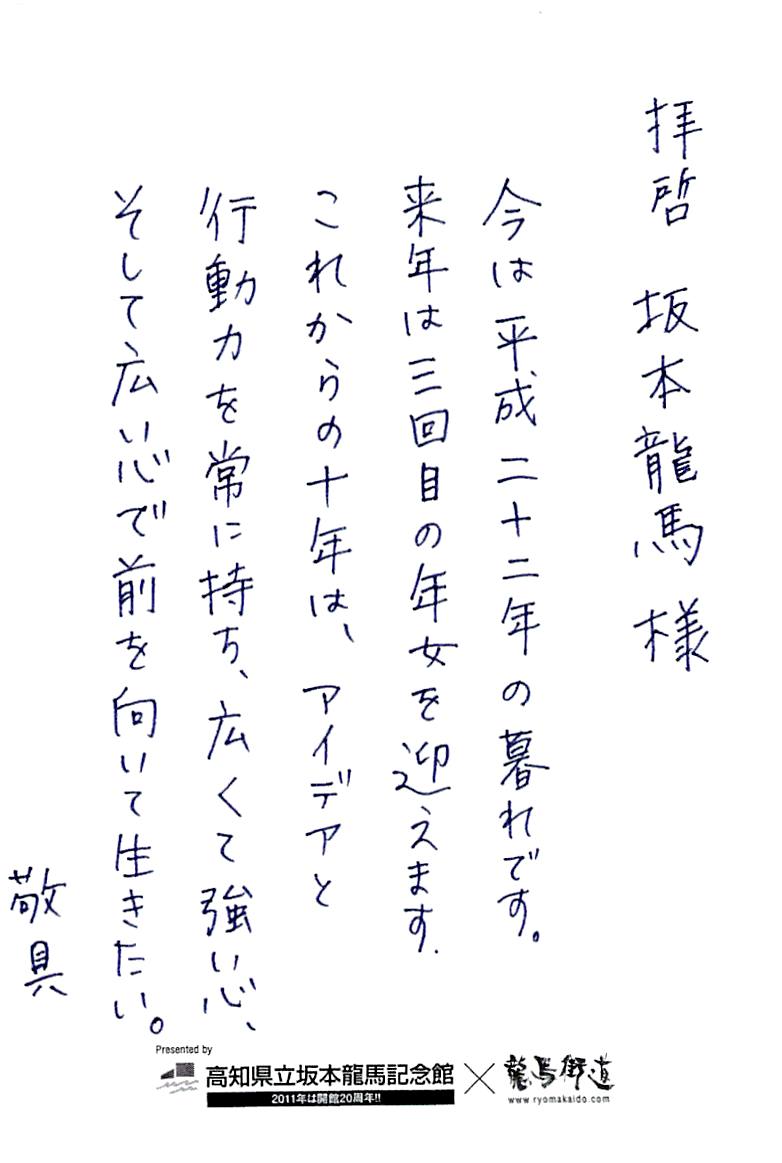 拝啓 坂本龍馬様
今は平成二十二年の暮れです。
来年は三回目の年女を迎えます.
これからの十年は、アイデアと
行動力を常に持ち、広くて強い心、
そして広い心で前を向いて生きたい。
敬具
Presented by
高知県立坂本龍馬記念館 × 龍馬街道
2011年は開館20周年!!
www.ryomakaido.com